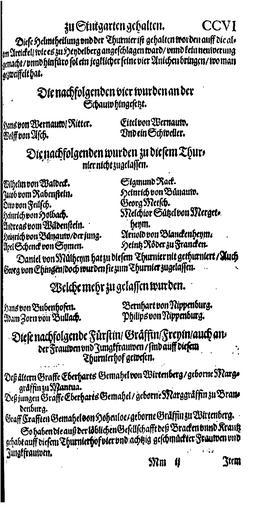 zu Stutgarten gehalten. CCVI
Diese Helmtheilung vnd der Thurnier ist gehalten worden auff die al-
ten Artickel / wie es zu Heydelberg angeschlagen ward / vnnd kein neuwerung
gemacht / vnnd hinfüro sol ein jegklicher seine vier Anichen bringen / wo man
gezweiffelt hat.
Die nachfolgenden vier wurden an der
Schauw hingesetzt.
Hans von Wernauw / Ritter. Eitel von Wernauw.
Wolff von Asch. Vnd ein Schweller.
Die nachfolgenden wurden zu diesem Thur-
nier nicht zugelassen.
Wilhelm von Waldeck. Sigmund Rack.
Jacob von Rabenstein. Heinrich von Bünauw.
Otto von Feilsch. Georg Mersch.
Heinrich von Holbach. Melchior Sützel von Merget-
Andreas von Wildenstein. heym.
Heinrich von Bünauw / der jung. Arnold von Blanckenheym.
Apel Schenck von Symen. Heintz Röder zu Francken.
Daniel von Mülheym hat zu diesem Thurnier nit gethurniert / Auch
Georg von Ehingen / doch wurden sie zum Thurnier zugelassen.
Welche mehr zu gelassen wurden.
Hans von Bubenhofen. Bernhart von Nippenburg.
Adam Zorn von Bullach. Philips von Nippenburg.
Diese nachfolgende Fürstin / Gräffin / Freyin / auch an-
der Frauwen vnd Jungkfrauwen / sind auff diesem
Thurnierhof gewesen.
Deß ältern Graffe Eberharts Gemahel von Wirtenberg / geborne Marg-
gräffin zu Mantua.
Deß jungen Graffe Eberharts Gemahel / geborne Marggräffin zu Bran-
denburg.
Graff Crafften Gemahel von Hohenloe / geborne Gräffin zu Wirtenberg.
So haben die auß der löblichen Gesellschafft deß Bracken vnnd Krantz
gehabt auff diesem Thurnierhof vier vnd achtzig geschmückter Frauwen vnd
Jungkfrauwen.
Mm ij Item